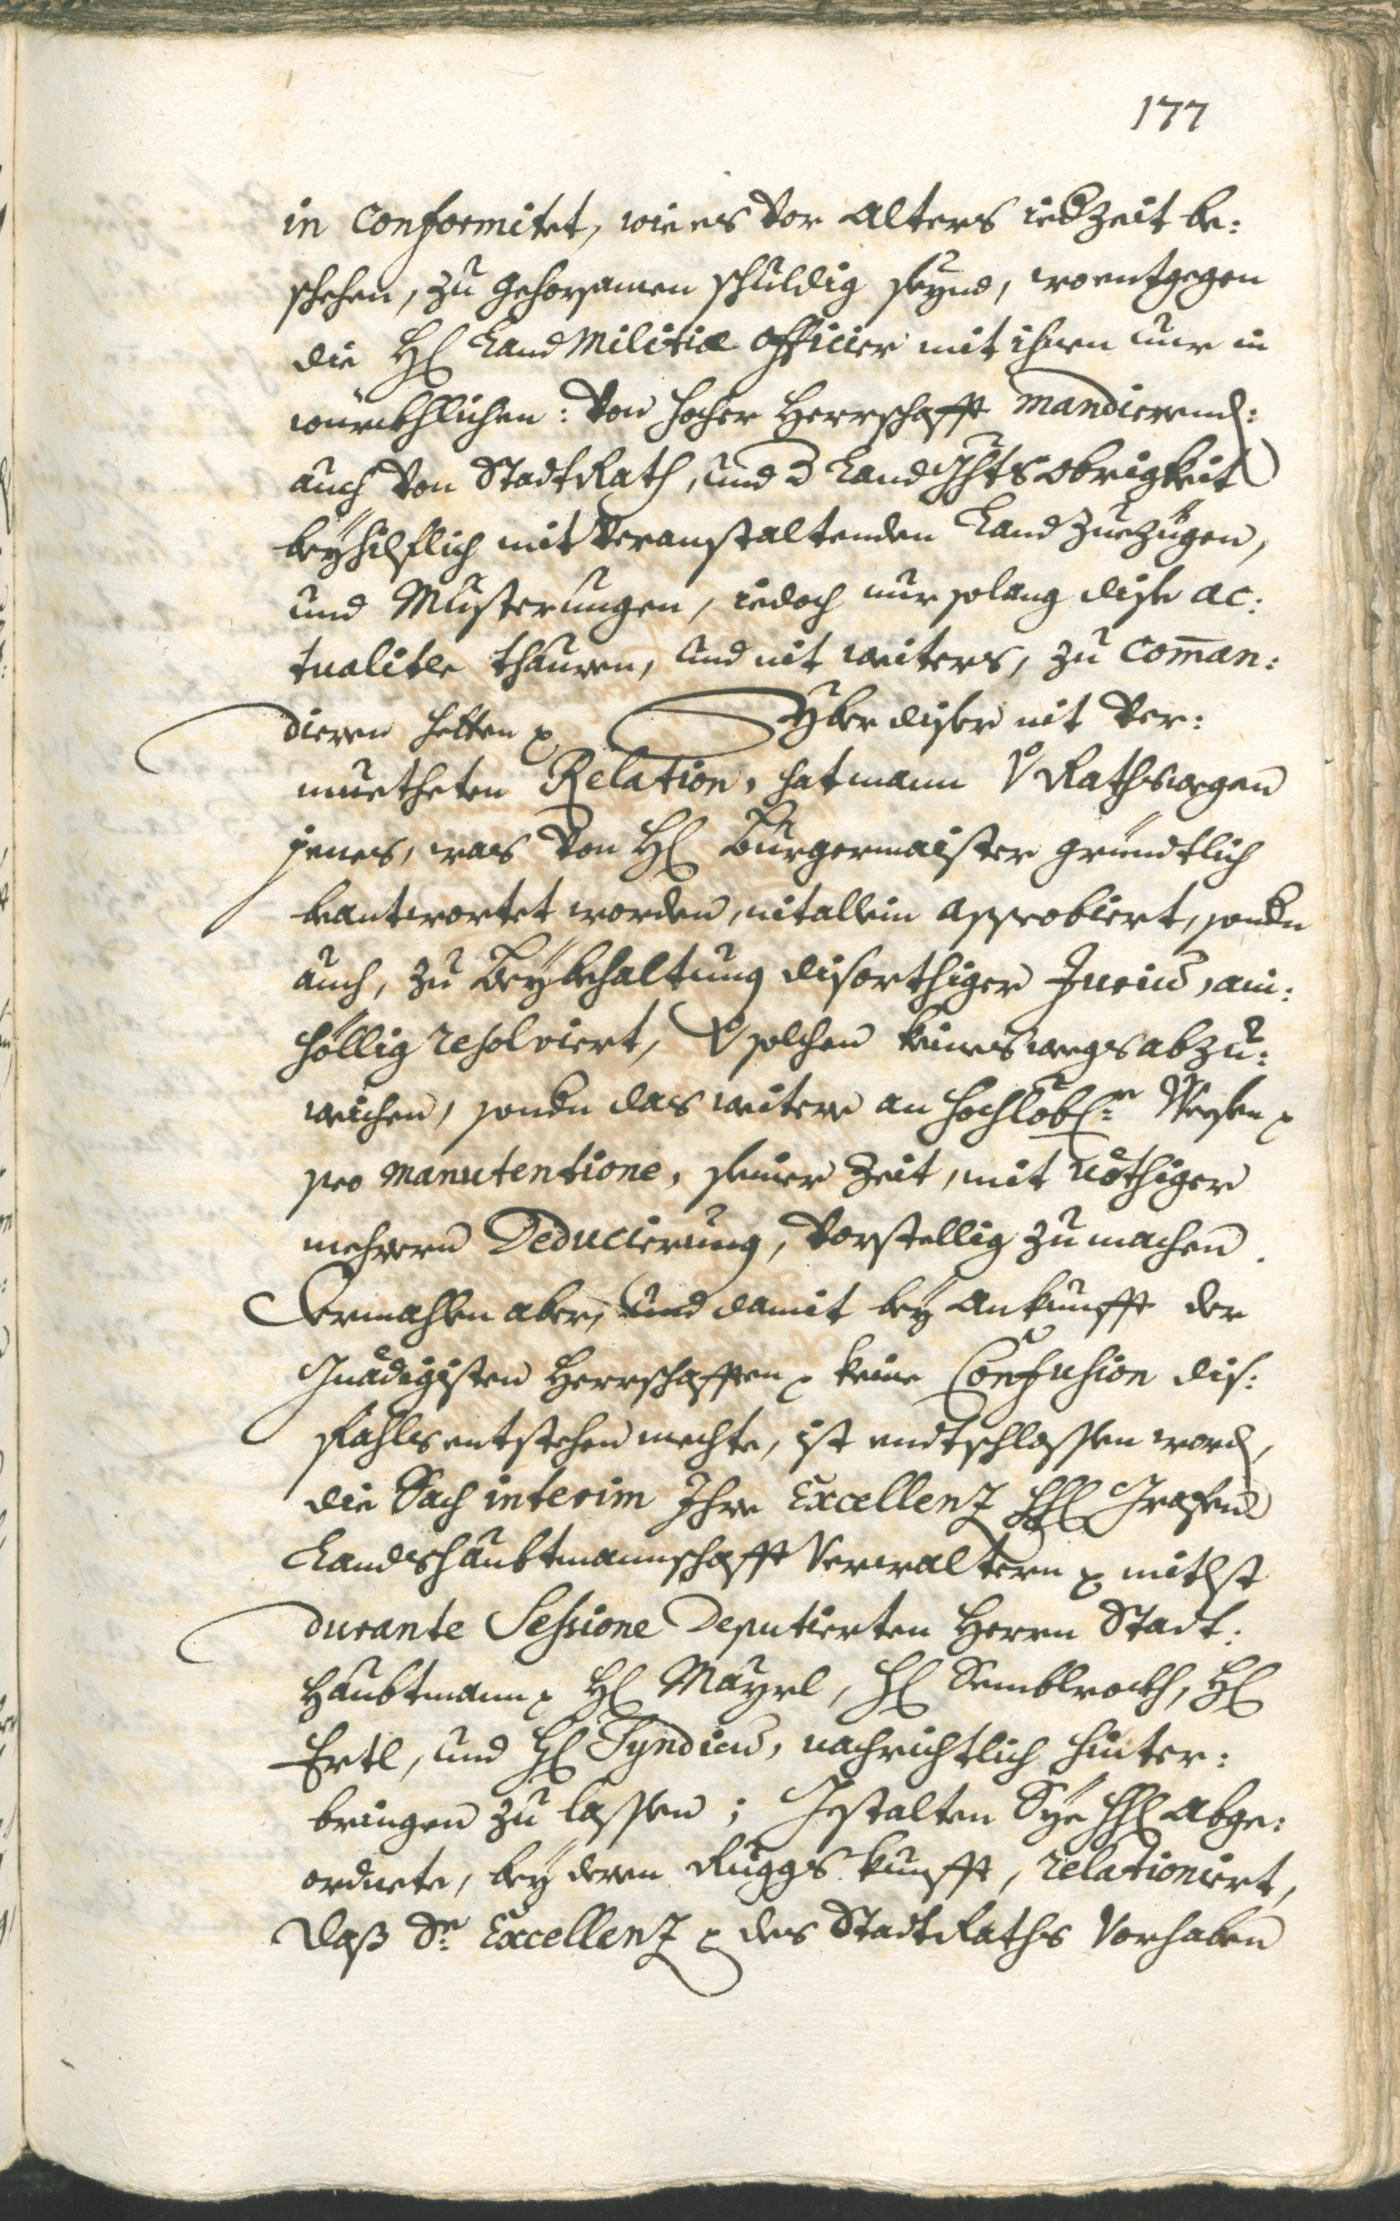 177
in conformitet, wie es vor Alters iedzeit be:
schehen, zu gehorsamen schuldig seynd, wo entgegen
die H Land Militiæ Officier mit ihnen nur in
würckhlichen: von hocher Herrschafft mandierend:
auch von StadtRath, und d LandGhtsObrigkeit
beyhilflich mit veranstaltenden Landzuezügen,
und Musterungen, iedoch nur solang dise ac:
tualitæ thauren, und nit weiters, zu com̄an:
dieren hetten Yber diser nit ver:
muetheten Relation, hat mann v Raths wegen
jenes, was von H Burgermaister gründtlich
beantwortet worden, nit allein approbiert, sondn
auch, zu Beybehaltung disorthiger Jurium, ain:
höllig resolviert, v solchen keineswegs abzu:
weichen, sondn das weitere an hochlöb: Weesen
pro manutentione, seiner Zeit, mit nöthiger
mehrern Deducierung, vorstellig zu machen.
Dermahlen aber, und damit bey ankunfft der
Gnädigisten Herrschafften keine Confusion dis:
fahls entstehen mechte, ist endtschlossen word,
die Sach interim Ihro Excellenz HH Grafen
Landtshaubtmannschafft Verwaltern mitlst
durante Sessione Deputierten Herrn Stadt:
haubtmann H Mayrl, H Semblrockh, H
Ertl, und H Syndicus, nachrichtlich hinter:
bringen zu lassen; Gestalten Sye HH Abge:
ordnete, bey deren Ruggskunfft, relationiert,
Daß Sr Excellenz des StadtRaths Vorhaben